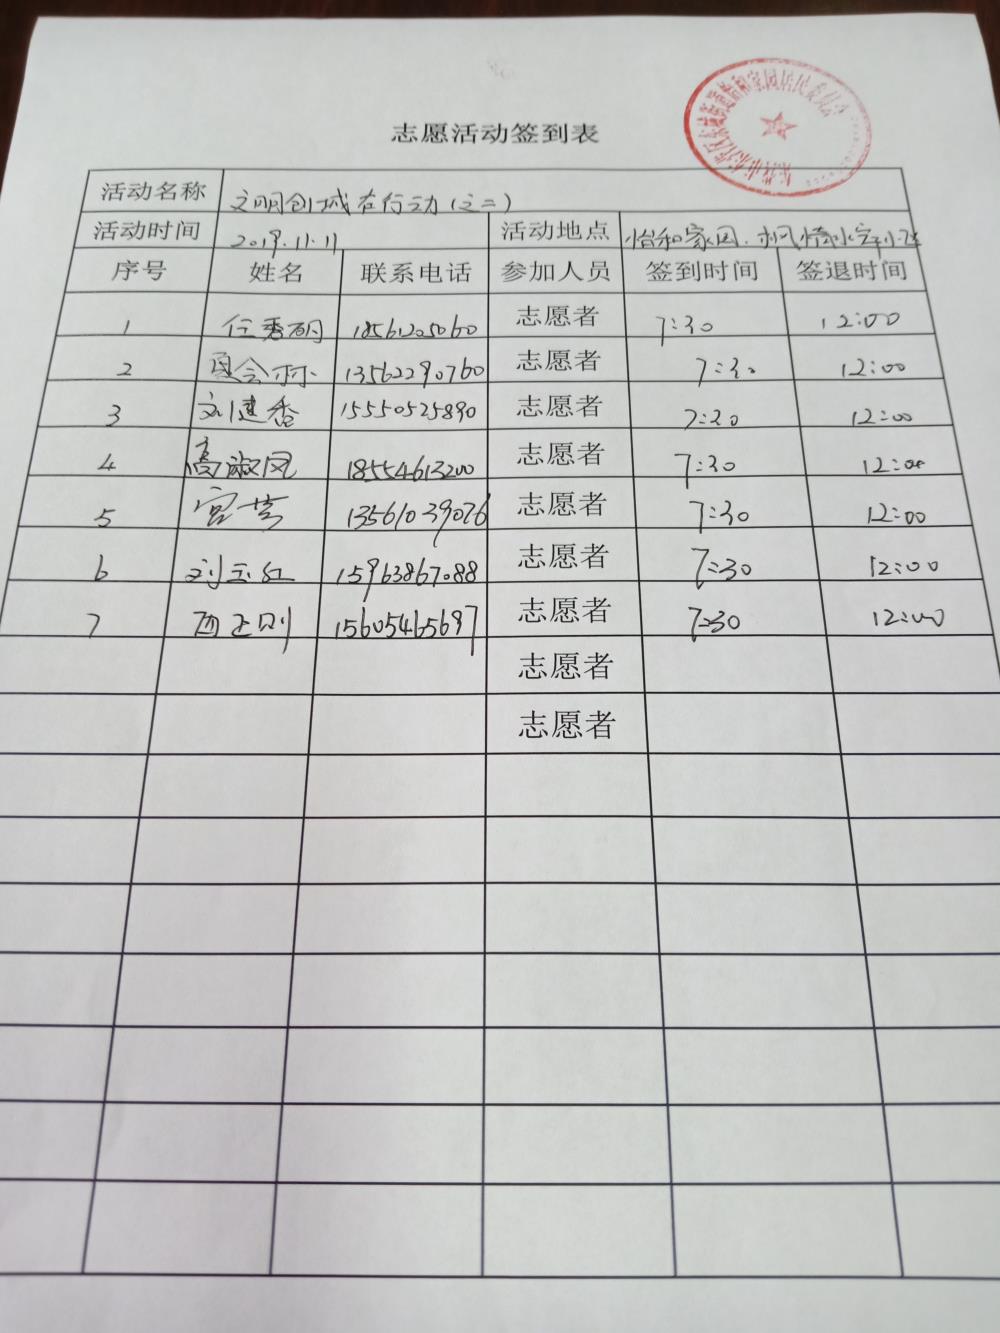 志愿活动签到表
活动名称 文明创城在行动(之二)
活动时间 2019.11.11 活动地点 怡和家园.枫情水岸小区
序号 姓名 联系电话 参加人员 签到时间 签退时间
1 任秀丽 18561205060 志愿者 7:30 12:00
2 13562290760 志愿者 7:30 12:00
3 刘建香 15550525890 志愿者 7:30 12:00
4 高淑凤 18554613200 志愿者 7:30 12:00
5 宫芸 13561039076 志愿者 7:30 12:00
6 刘玉红 15963867088 志愿者 7:30 12:00
7 西正则 15605465697 志愿者 7:30 12:00
志愿者
志愿者